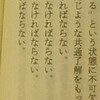 る。という状態に不可欠
じような共通了解をもっ
なければならない。
なければならない。
ばならない。